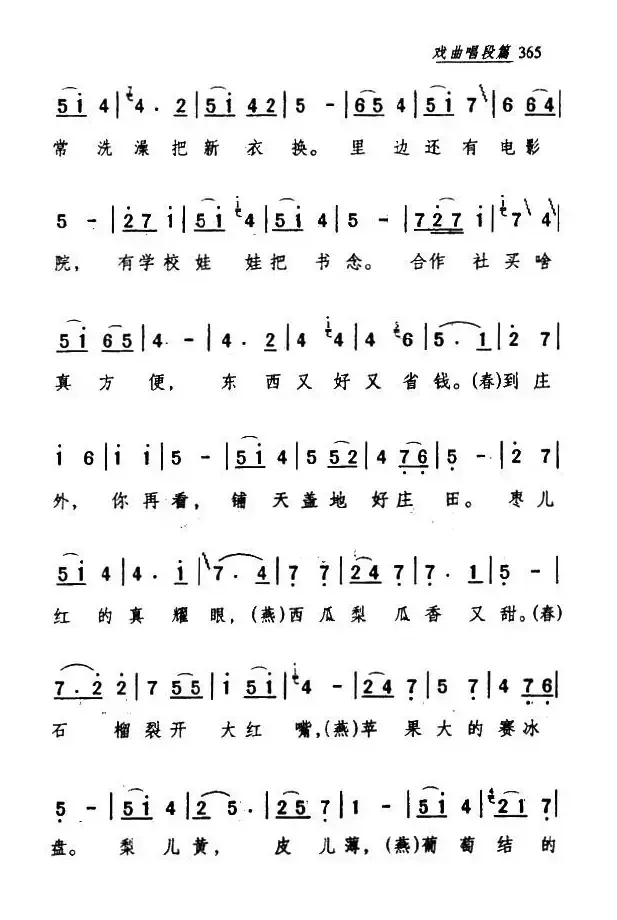 戏曲唱段篇 365
5 1 4 | 4 . 2 | 5 1 4 2 | 5 - | 6 5 4 | 5 1 7 | 6 6 4 |
常洗澡把新衣换。里边还有电影
5 - | 2 7 1 | 5 1 4 | 5 1 4 | 5 - | 7 2 7 1 | 7 4 |
院，有学校娃娃把书念。合作社买啥
5 1 6 5 | 4 - | 4 . 2 | 4 4 | 6 5 . 1 | 2 7 |
真方便，东西又好又省钱。(春)到庄
1 6 | 1 1 | 5 - | 5 1 4 | 5 5 2 | 4 7 6 | 5 - | 2 7 |
外，你再看，铺天盖地好庄田。枣儿
5 1 4 | 4 . 1 | 7 . 4 | 7 7 | 2 4 7 | 7 . 1 | 5 - |
红的真耀眼，(燕)西瓜梨瓜香又甜。(春)
7 . 2 2 | 7 5 5 | 1 5 1 | 4 - | 2 4 7 | 5 7 | 4 7 6 |
石榴裂开大红嘴，(燕)苹果大的赛冰
5 - | 5 1 4 | 2 5 . | 2 5 7 | 1 - | 5 1 4 | 2 1 7 |
盘。梨儿黄，皮儿薄，(燕)葡萄结的